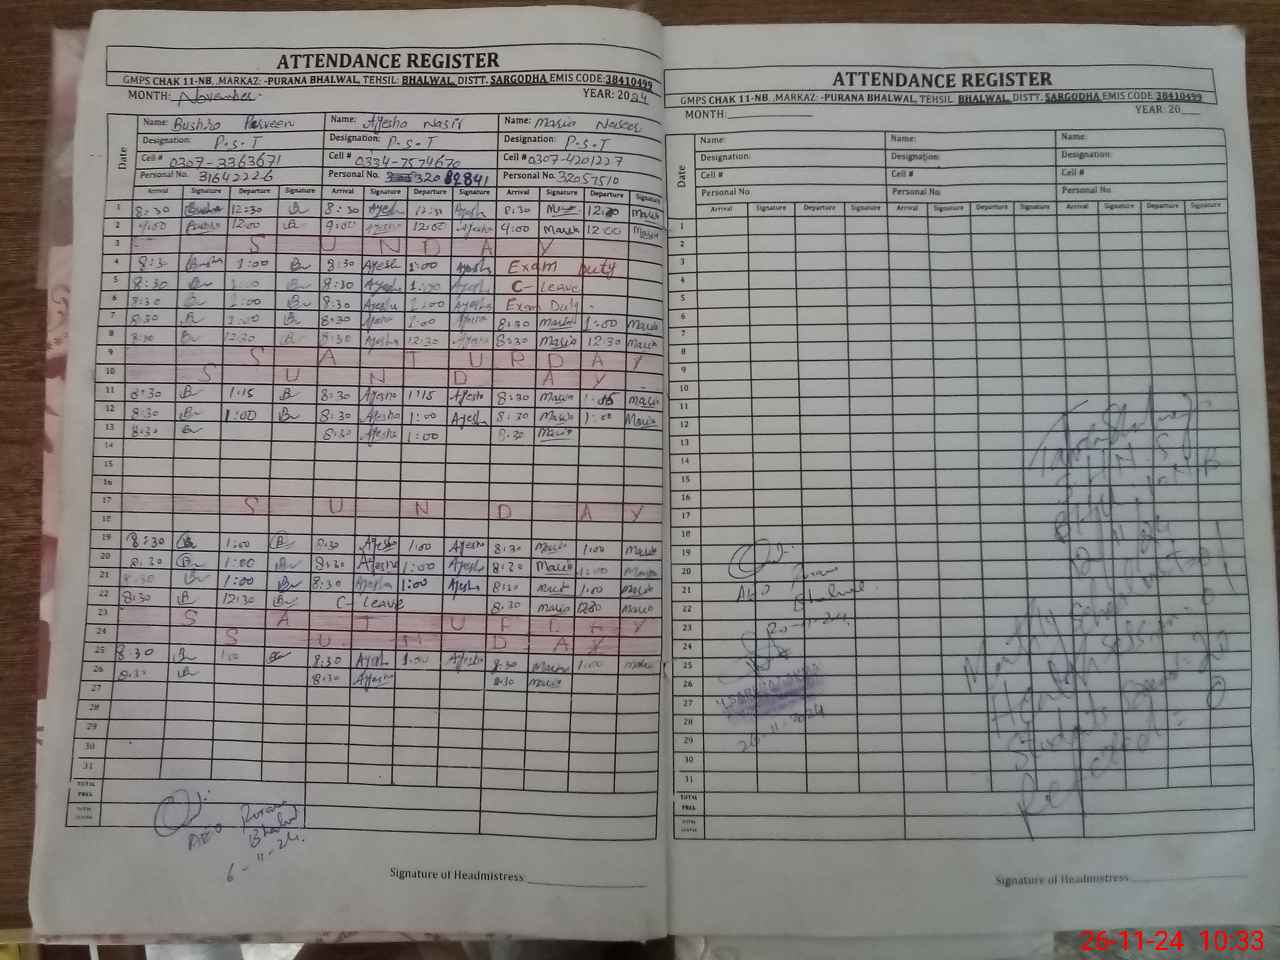 ATTENDANCE REGISTER
GMPS CHAK 11-NB, MARKAZ: -PURANA BHALWAL, TEHSIL: BHALWAL, DISTT. SARGODHA EMIS CODE:38410499
MONTH: November. YEAR: 2024
Date
Name: Bushra Parveen Name: Ayesha Nasir Name: Maria Naseer
Designation: P.S.T Designation: P.S.T Designation: P.S.T
Cell # 0307-3363671 Cell # 0334-7574670 Cell # 0307-4201227
Personal No. 31642226 Personal No. 32082841 Personal No. 32057510
Arrival Signature Departure Signature Arrival Signature Departure Signature Arrival Signature Departure Signature
1 8:30 12:30 B 8:30 Ayesh 12:30 Ayesha 8:30 12:30 Maria
2 9:00 12:00 B 9:00 Ayesha 12:00 Ayesha 9:00 Maria 12:00 Maria
3 S U N D A Y
4 8:3 1:00 B 8:30 Ayesh 1:00 Ayesha Exam Duty
5 8:30 B 1:00 B 8:30 Ayesha 1:00 Ayesha C-Leave
6 8:30 B 1:00 B 8:30 Ayesha 1:00 Ayesha Exam Duty
7 8:30 B 1:00 B 8:30 Ayesha 1:00 Ayesha 8:30 Maria 1:00 Maria
8 8:30 B 12:30 B 8:30 Ayesha 12:30 Ayesha 8:30 Maria 12:30 Maria
9 S A T U R D A Y
10 S U N D A Y
11 8:30 B 1:15 B 8:30 Ayesha 1:15 Ayesha 8:30 Maria 1:15 Maria
12 8:30 B 1:00 B 8:30 Ayesha 1:00 Ayesh 8:30 Maria 1:00 Maria
13 8:30 B 8:30 Ayesha 1:00 8:30 Maria
14
15
16
17 S U N D A Y
18
19 8:30 B 1:00 B 8:30 Ayesha 1:00 Ayesha 8:30 Maria 1:00 Maria
20 8:30 B 1:00 B 8:30 Ayesha 1:00 Ayesha 8:30 Maria 1:00 Maria
21 8:30 B 1:00 B 8:30 Ayesha 1:00 Ayesha 8:30 Maria 1:00 Maria
22 8:30 B 12:30 B C-Leave 8:30 Maria 12:30 Maria
23 S A T U R D A Y
24 S U N D A Y
25 8:30 B 1:00 B 8:30 Ayesh 1:00 Ayesha 8:30 Maria 1:00 Maria
26 8:30 B 8:30 Ayesha 8:30 Maria
27
28
29
30
31
TOTAL
PREL
TOTAL
AEO Purana
Bhalwal
6-11-24.
Signature of Headmistress:
ATTENDANCE REGISTER
GMPS CHAK 11-NB, MARKAZ: -PURANA BHALWAL, TEHSIL: BHALWAL, DISTT. SARGODHA EMIS CODE:38410499
MONTH: YEAR: 20
Date
Name: Name: Name:
Designation: Designation: Designation:
Cell # Cell # Cell #
Personal No. Personal No. Personal No.
Arrival Signature Departure Signature Arrival Signature Departure Signature Arrival Signature Departure Signature
1
2
3
4
5
6
7
8
9
10
11
12
13
14
15
16
17
18
19
20
21
22
23
24
25
26
27
28
29
30
31
TOTAL
PREL
TOTAL
AEO Purana
Bhalwal.
20-11-24.
26-11-2024
Health Session
Students
Refered = 0
Signature of Headmistress:
26-11-24 10:33